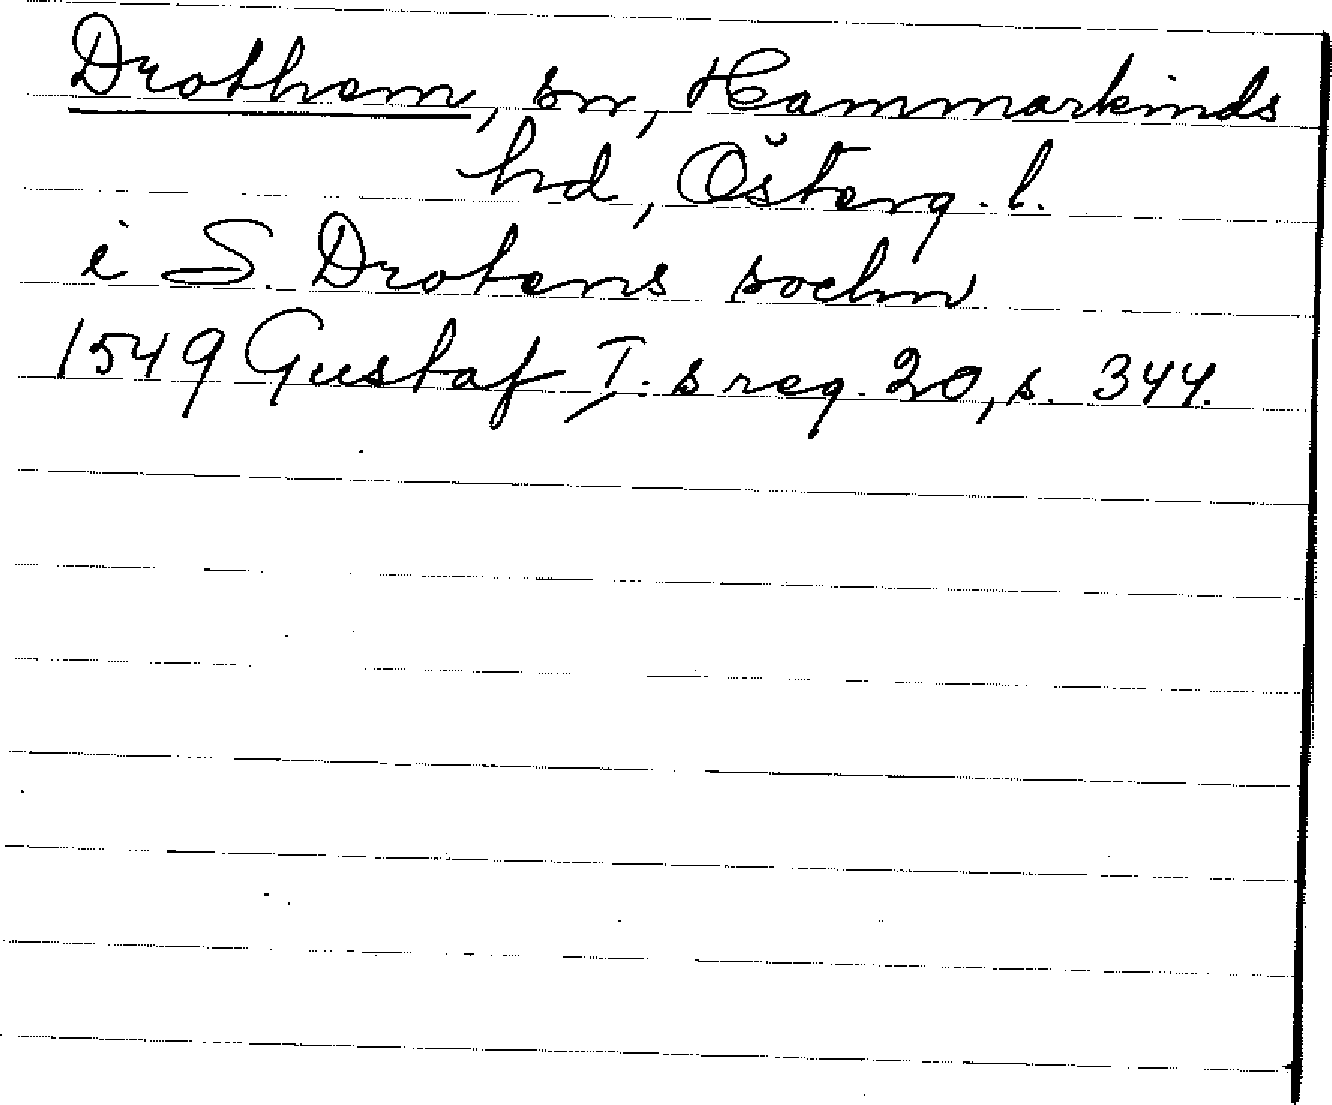 Drothem, sn, Hammarkinds
hd, Österg. l.
i S. Drotens sochn
1549 Gustaf I. s reg. 20, s. 344.